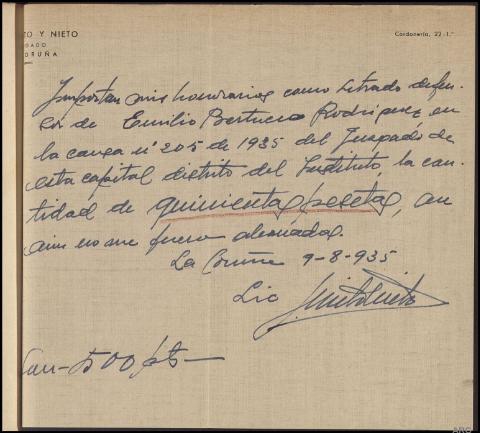 TO Y NIETO
GADO
ORUÑA
Cordonería, 22-1.°
Importan mis honorarios como letrado defen-
sor de Emilio Bertucco Rodríguez, en
la causa nº 205 de 1935 del Juzgado de
esta capital distrito del Instituto, la can-
tidad de quinientas pesetas, que
aun no me fueron abonadas.
La Coruña 9-8-935
Lic
Son-500 pts-
ARG